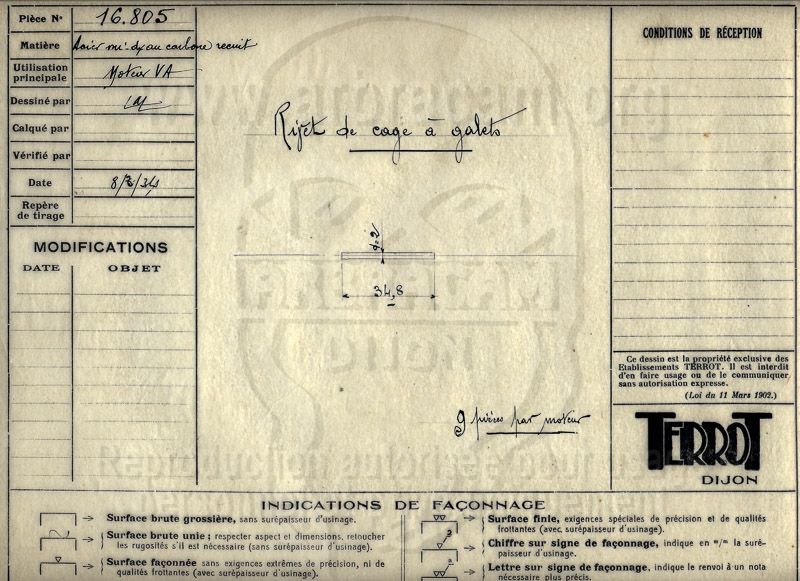 Pièce N° 16.805
Matière Acier mi-dx au carbone recuit
Utilisation
principale Moteur VA
Dessiné par
Calqué par
Vérifié par
Date
Repère
de tirage
MODIFICATIONS
DATE OBJET
Rivet de cage à galets
d=2
34,8
9 pièces par moteur
CONDITIONS DE RÉCEPTION
Ce dessin est la propriété exclusive des
Etablissements TERROT. Il est interdit
d'en faire usage ou de le communiquer
sans autorisation expresse.
(Loi du 11 Mars 1902.)
TERROT
DIJON
INDICATIONS DE FAÇONNAGE
Surface brute grossière, sans surépaisseur d'usinage.
Surface brute unie ; respecter aspect et dimensions, retoucher
les rugosités s'il est nécessaire (sans surépaisseur d'usinage).
Surface façonnée sans exigences extrêmes de précision, ni de
qualités frottantes (avec surépaisseur d'usinage).
Surface finie, exigences spéciales de précision et de qualités
frottantes (avec surépaisseur d'usinage).
2
Chiffre sur signe de façonnage, indique en m/m la suré-
paisseur d'usinage.
Lettre sur signe de façonnage, indique le renvoi à un nota
nécessaire plus précis.